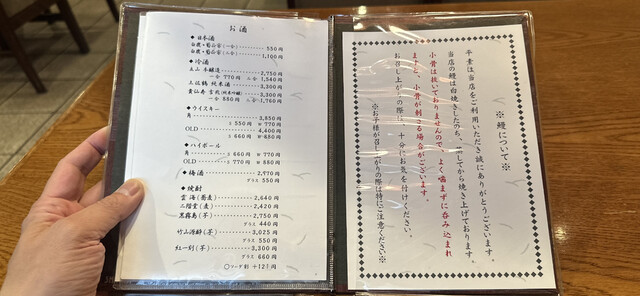 お酒
◆日本酒
白鹿・菊正宗(一合) 550円
白鹿・菊正宗(二合) 1,100円
◆冷酒
玉山 本醸造 2,750円
一合 770円 二合 1,540円
立山 純米酒 3,300円
3,300円
一合 880円 二合 1,760円
◆ウイスキー
角 3,850円
S 550円 W 770円
OLD 4,400円
S 660円 W 880円
◆ハイボール
角 S 660円 W 770円
OLD S 770円 W 880円
◆梅酒 2,970円
グラス 550円
◆焼酎
雲海(蕎麦) 2,640円
二階堂(麦) 2,420円
黒霧島(芋) 2,750円
グラス 440円
竹山源酔(芋) 3,025円
グラス 550円
紅一刻(芋) 3,300円
グラス 660円
〇ソーダ割 +123円
※鰻について※
平素は当店をご利用いただき誠にありがとうございます。
当店の鰻は白焼きしたのち、蒸してから焼き上げております。
小骨は抜いておりませんので、よく噛まずに呑み込まれ
ますと、小骨が刺さる場合がございます。
お召し上がりの際は、十分にお気を付けください。
※お子様が召し上がりの際は特にご注意ください※